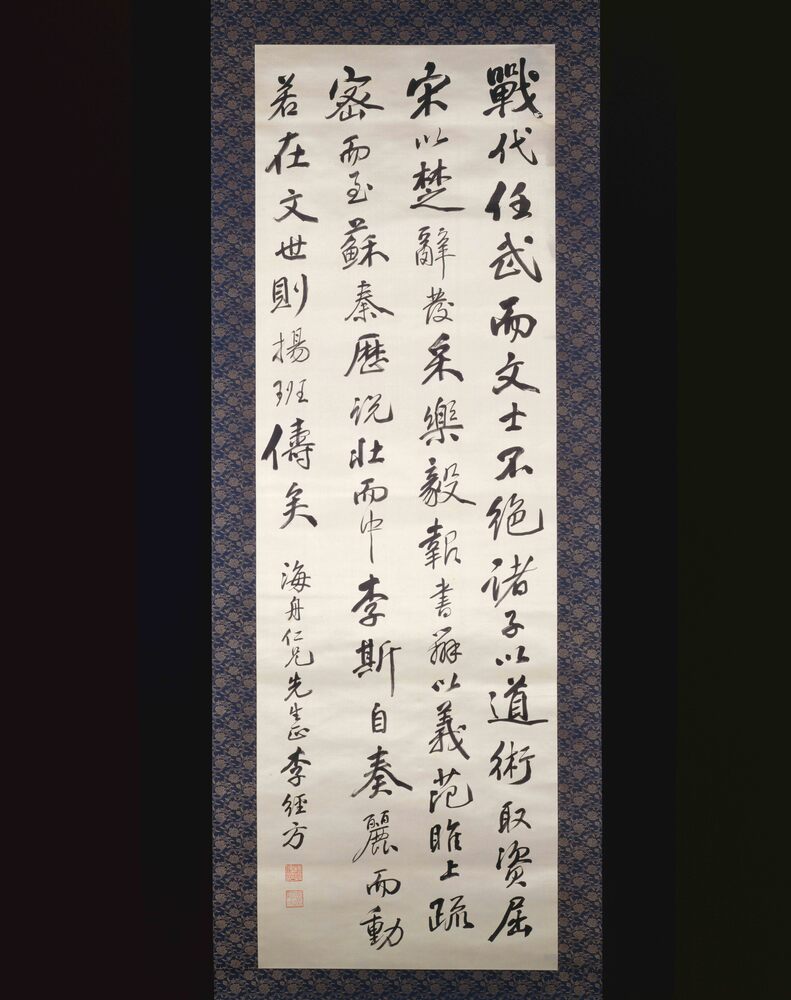 戰代任武而文士不絕諸子以道術取資屈
宋以楚辭發采樂毅報書辨以義范雎上疏
密而至蘇秦歷說壯而中李斯自奏麗而動
若在文世則揚班儔矣
海舟仁兄先生正李經方